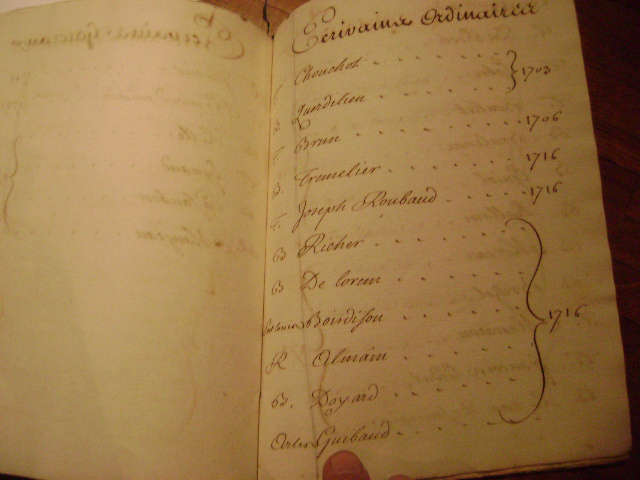 Ecrivains Ordinaires
Chouchot
1703
Querdelien
T. Brun 1706
B. Tremelier 1716
T. Joseph Roubaud 1716
B Richer
B De lorem
Boisdison
1716
R Almain
B. Doyard
Guibaud